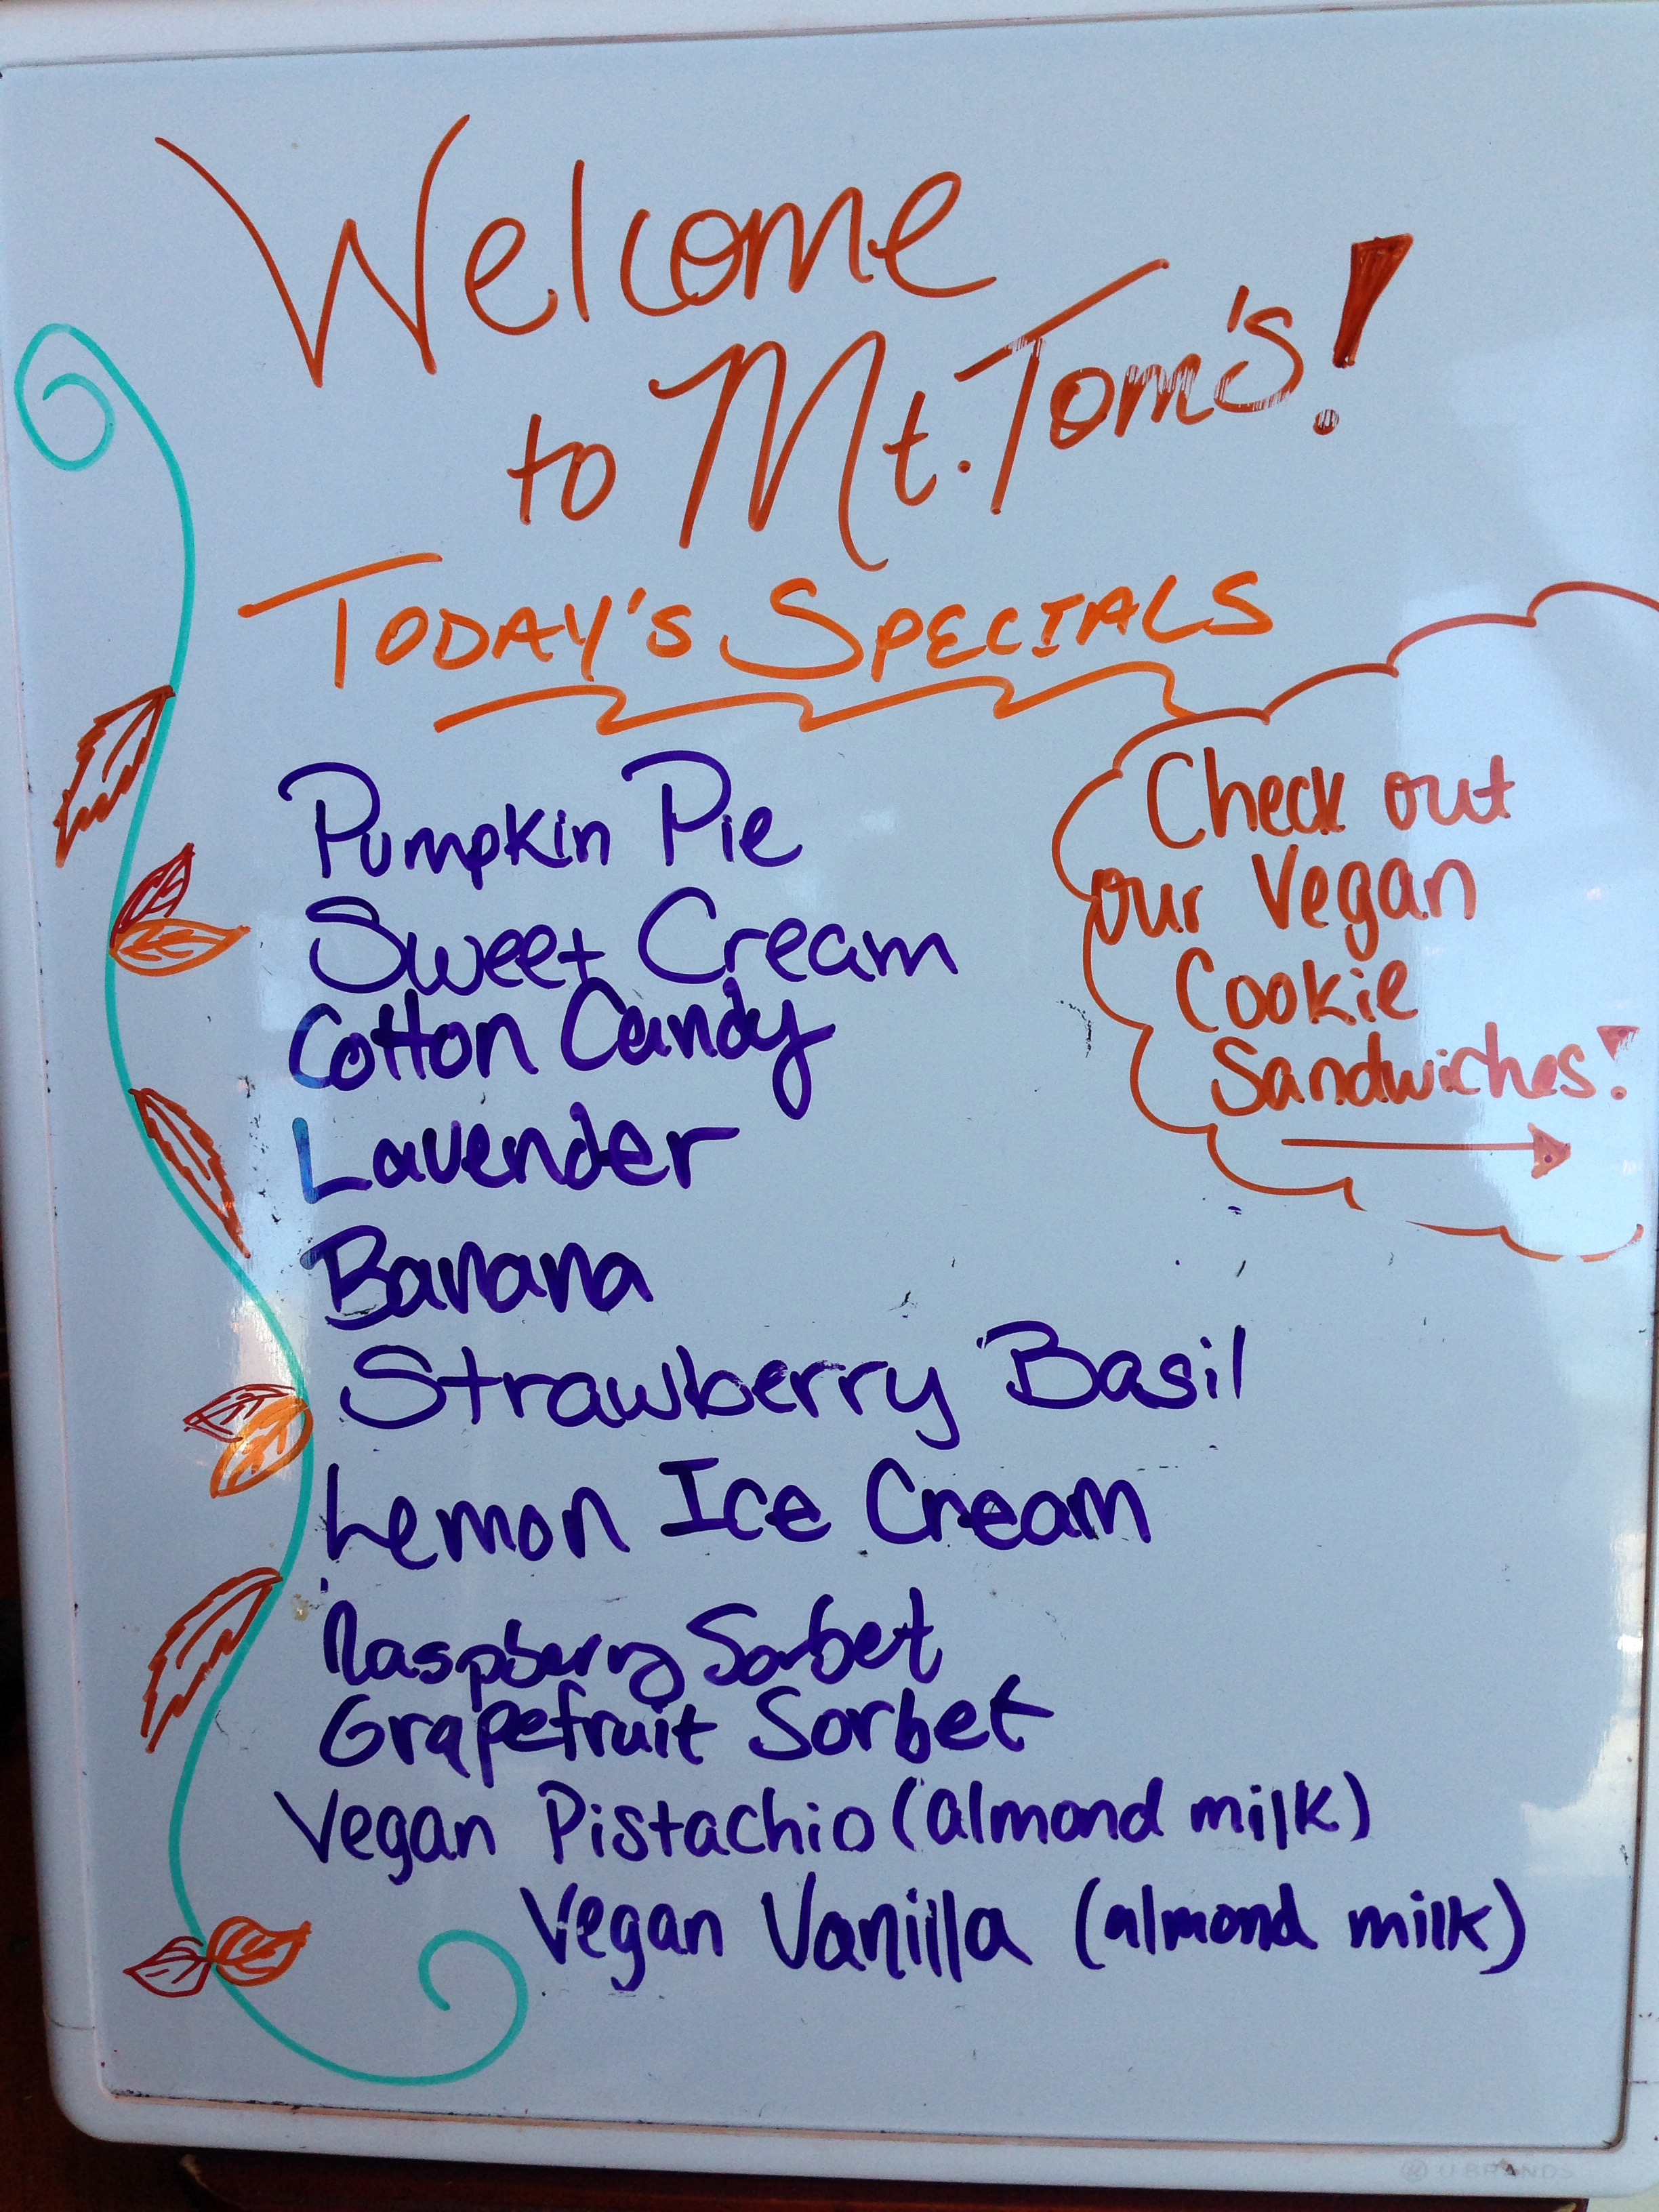 Welcome
to Mt. Tom's!
TODAY'S SPECIALS
Pumpkin Pie
Sweet Cream
Cotton Candy
Lavender
Banana
Strawberry Basil
Lemon Ice Cream
Raspberry Sorbet
Grapefruit Sorbet
Vegan Pistachio (almond milk)
Vegan Vanilla (almond milk)
Check out
our Vegan
Cookie
Sandwiches!
U BRANDS